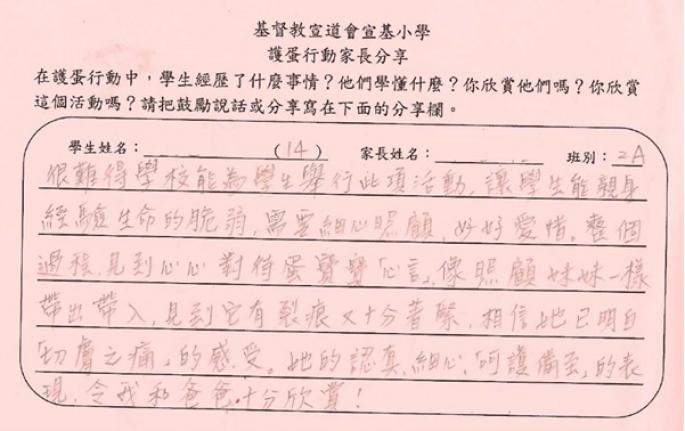 基督教宣道會宣基小學
護蛋行動家長分享
在護蛋行動中，學生經歷了什麼事情？他們學懂什麼？你欣賞他們嗎？你欣賞
這個活動嗎？請把鼓勵說話或分享寫在下面的分享欄。
學生姓名：(14) 家長姓名： 班別：2A
很難得學校能為學生舉行此項活動，讓學生能親身
經驗生命的脆弱，需要細心照顧，好好愛惜。整個
過程，見到心心對待蛋寶寶「心言」，像照顧妹妹一樣
帶出帶入，見到它有裂痕又十分着緊，相信她已明白
「切膚之痛」的感受。她的認真、細心、「呵護備至」的表
現，令我和爸爸十分欣賞！